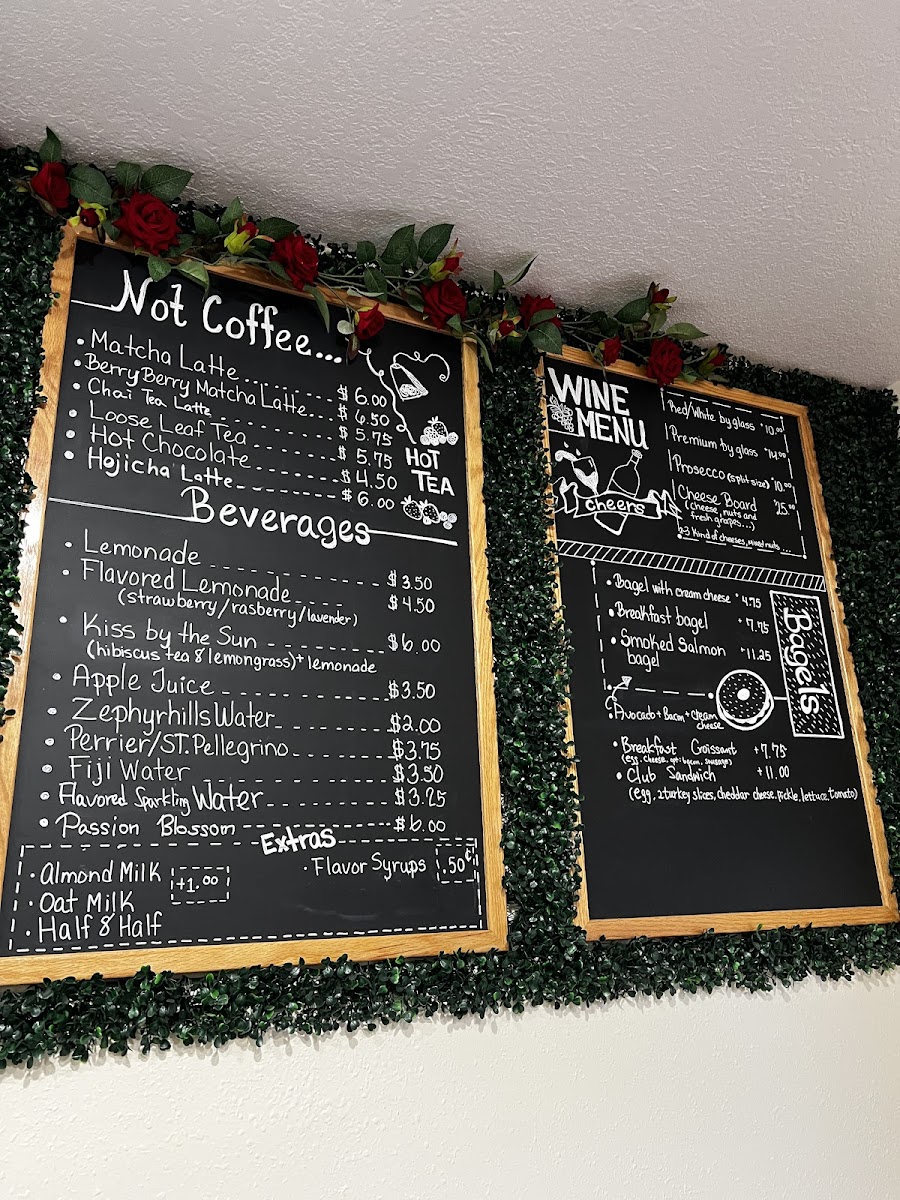 Not Coffee...
• Matcha Latte $ 6.00
• Berry Berry Matcha Latte $ 6.50
• Chai Tea Latte $ 5.75
• Loose Leaf Tea $ 5.75
• Hot Chocolate $ 4.50
• Hojicha Latte $ 6.00
HOT
TEA
Beverages
• Lemonade $3.50
• Flavored Lemonade $4.50
(strawberry/rasberry/lavender)
• Kiss by the Sun $6.00
(hibiscus tea & lemongrass)+ lemonade
• Apple Juice $3.50
• Zephyrhills Water $2.00
• Perrier/ST. Pellegrino $3.75
• Fiji Water $3.50
• Flavored Sparkling Water $3.25
• Passion Blossom $6.00
Extras
• Almond Milk
+1.00
• Oat Milk
• Half & Half
• Flavor Syrups .50¢
WINE
MENU
cheers
Red/White by glass $10.00
Premium by glass $14.00
Prosecco (split size) $10.00
Cheese Board $25.00
(cheese, nuts and
fresh grapes...)
3 kind of cheeses, mixed nuts ...
• Bagel with cream cheese 4.75
• Breakfast bagel 7.75
• Smoked Salmon 11.25
bagel
Bagels
• Avocado + Bacon + Cream
cheese
• Breakfast Croissant +7.75
(egg, cheese, opt: bacon, sausage)
• Club Sandwich +11.00
(egg, 2 turkey slices, cheddar cheese, pickle, lettuce, tomato)